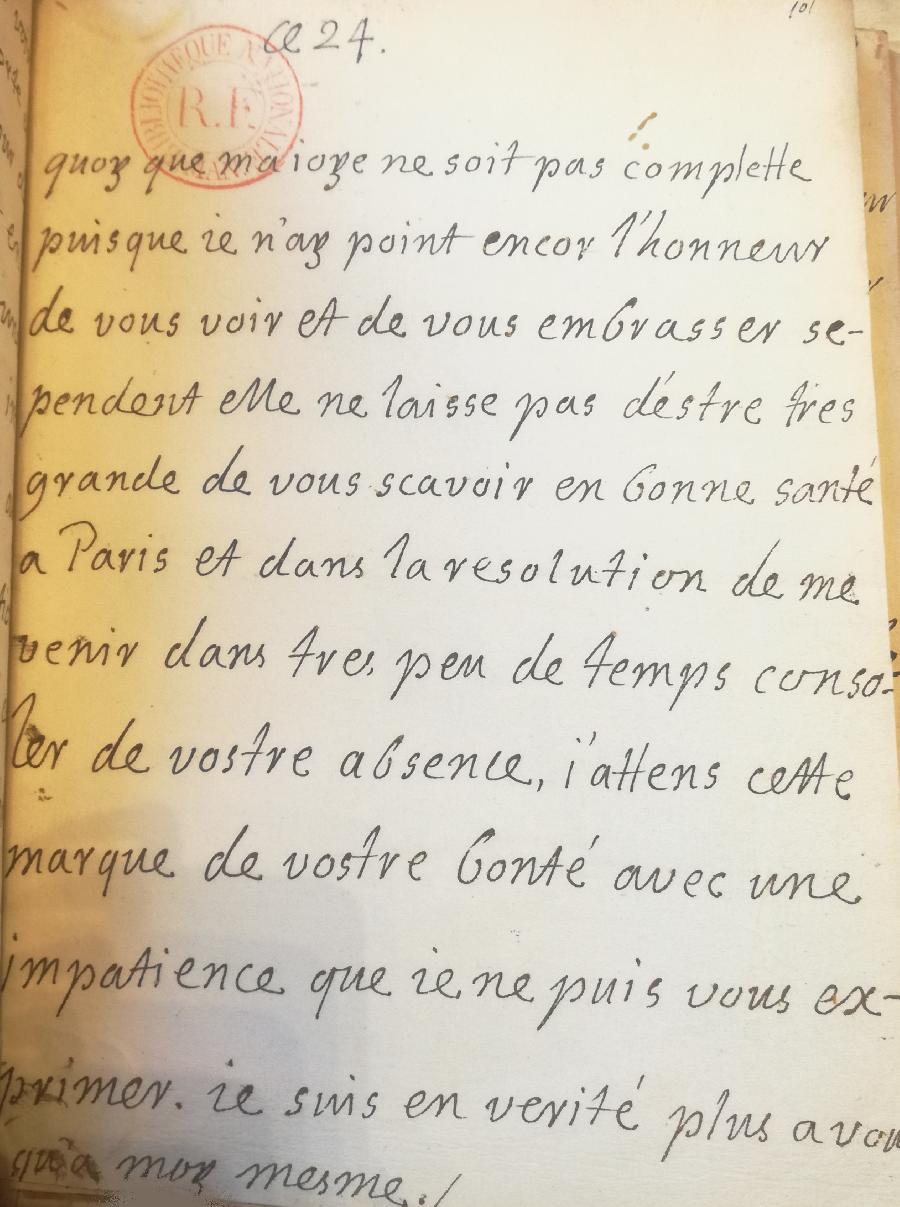 101
ce 24.
BIBLIOTHEQUE NATIONALE
R.F.
quoy que ma ioye ne soit pas complette
puisque ie n'ay point encor l'honneur
de vous voir et de vous embrasser se-
pendent elle ne laisse pas d'éstre tres
grande de vous scavoir en bonne santé
a Paris et dans la resolution de me
venir dans tres peu de temps conso-
ler de vostre absence, i'attens cette
marque de vostre bonté avec une
impatience que ie ne puis vous ex-
primer. ie suis en verité plus a vous
qu'a moy mesme./